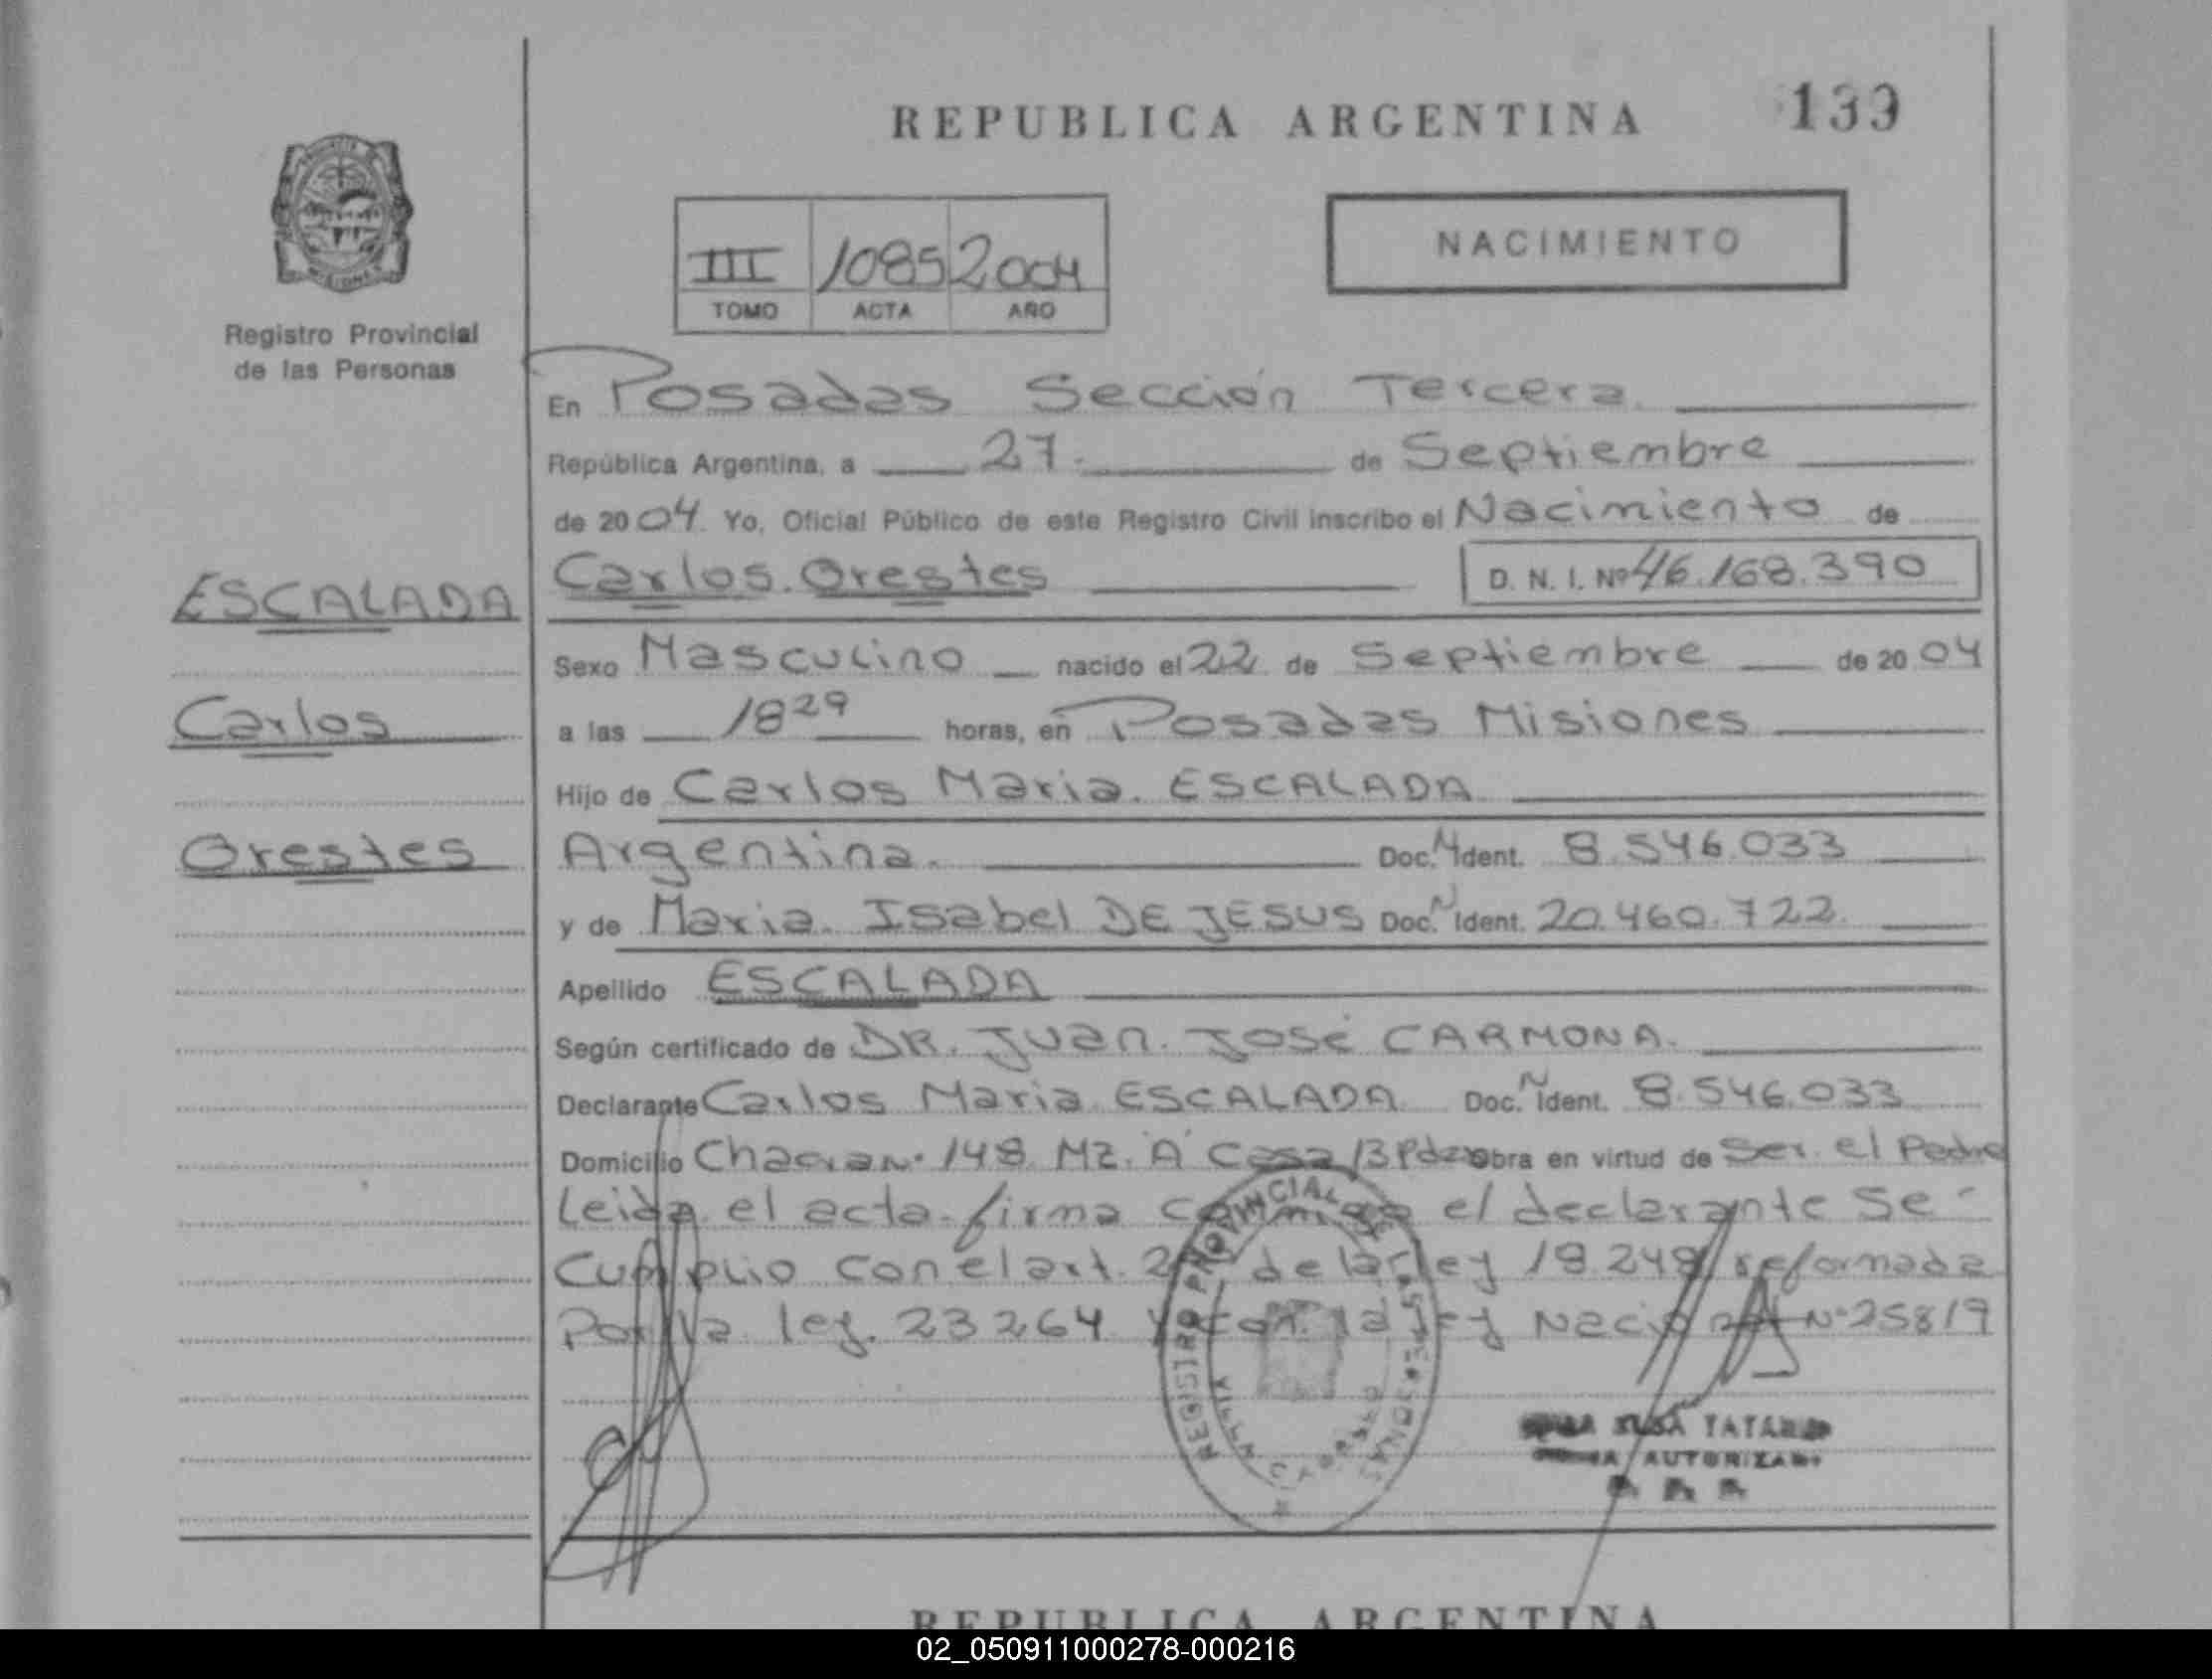 REPUBLICA ARGENTINA 133
NACIMIENTO
III 1085 2004
TOMO ACTA AÑO
Registro Provincial
de las Personas
En Posadas Sección Tercera
República Argentina, a 27 de Septiembre
de 2004. Yo, Oficial Público de este Registro Civil inscribo el Nacimiento de
ESCALADA Carlos Orestes D. N. I. Nº 46.168.390
Sexo Masculino nacido el 22 de Septiembre de 2004
Carlos a las 18 29 horas, en Posadas Misiones
Hijo de Carlos Maria ESCALADA
Orestes Argentina. Doc. N Ident. 8.546.033
y de Maria Isabel DE JESUS Doc. N Ident. 20.460.722
Apellido ESCALADA
Según certificado de DR. Juan José CARMONA.
Declarante Carlos Maria ESCALADA Doc. N Ident. 8.546.033
Domicilio Chacra Nº 148 MZ. A Casa 13 Pdas obra en virtud de Ser el Padre
Leida el acta firma conmigo el declarante Se
Cumplio con el art. de la ley 18.248 reformada
Por la ley 23264 y con la ley Nacional Nº 25819
REGISTRO PROVINCIAL DE LAS PERSONAS
VILLA
ELSA
AUTORIZADA
REPUBLICA ARGENTINA
02_050911000278-000216